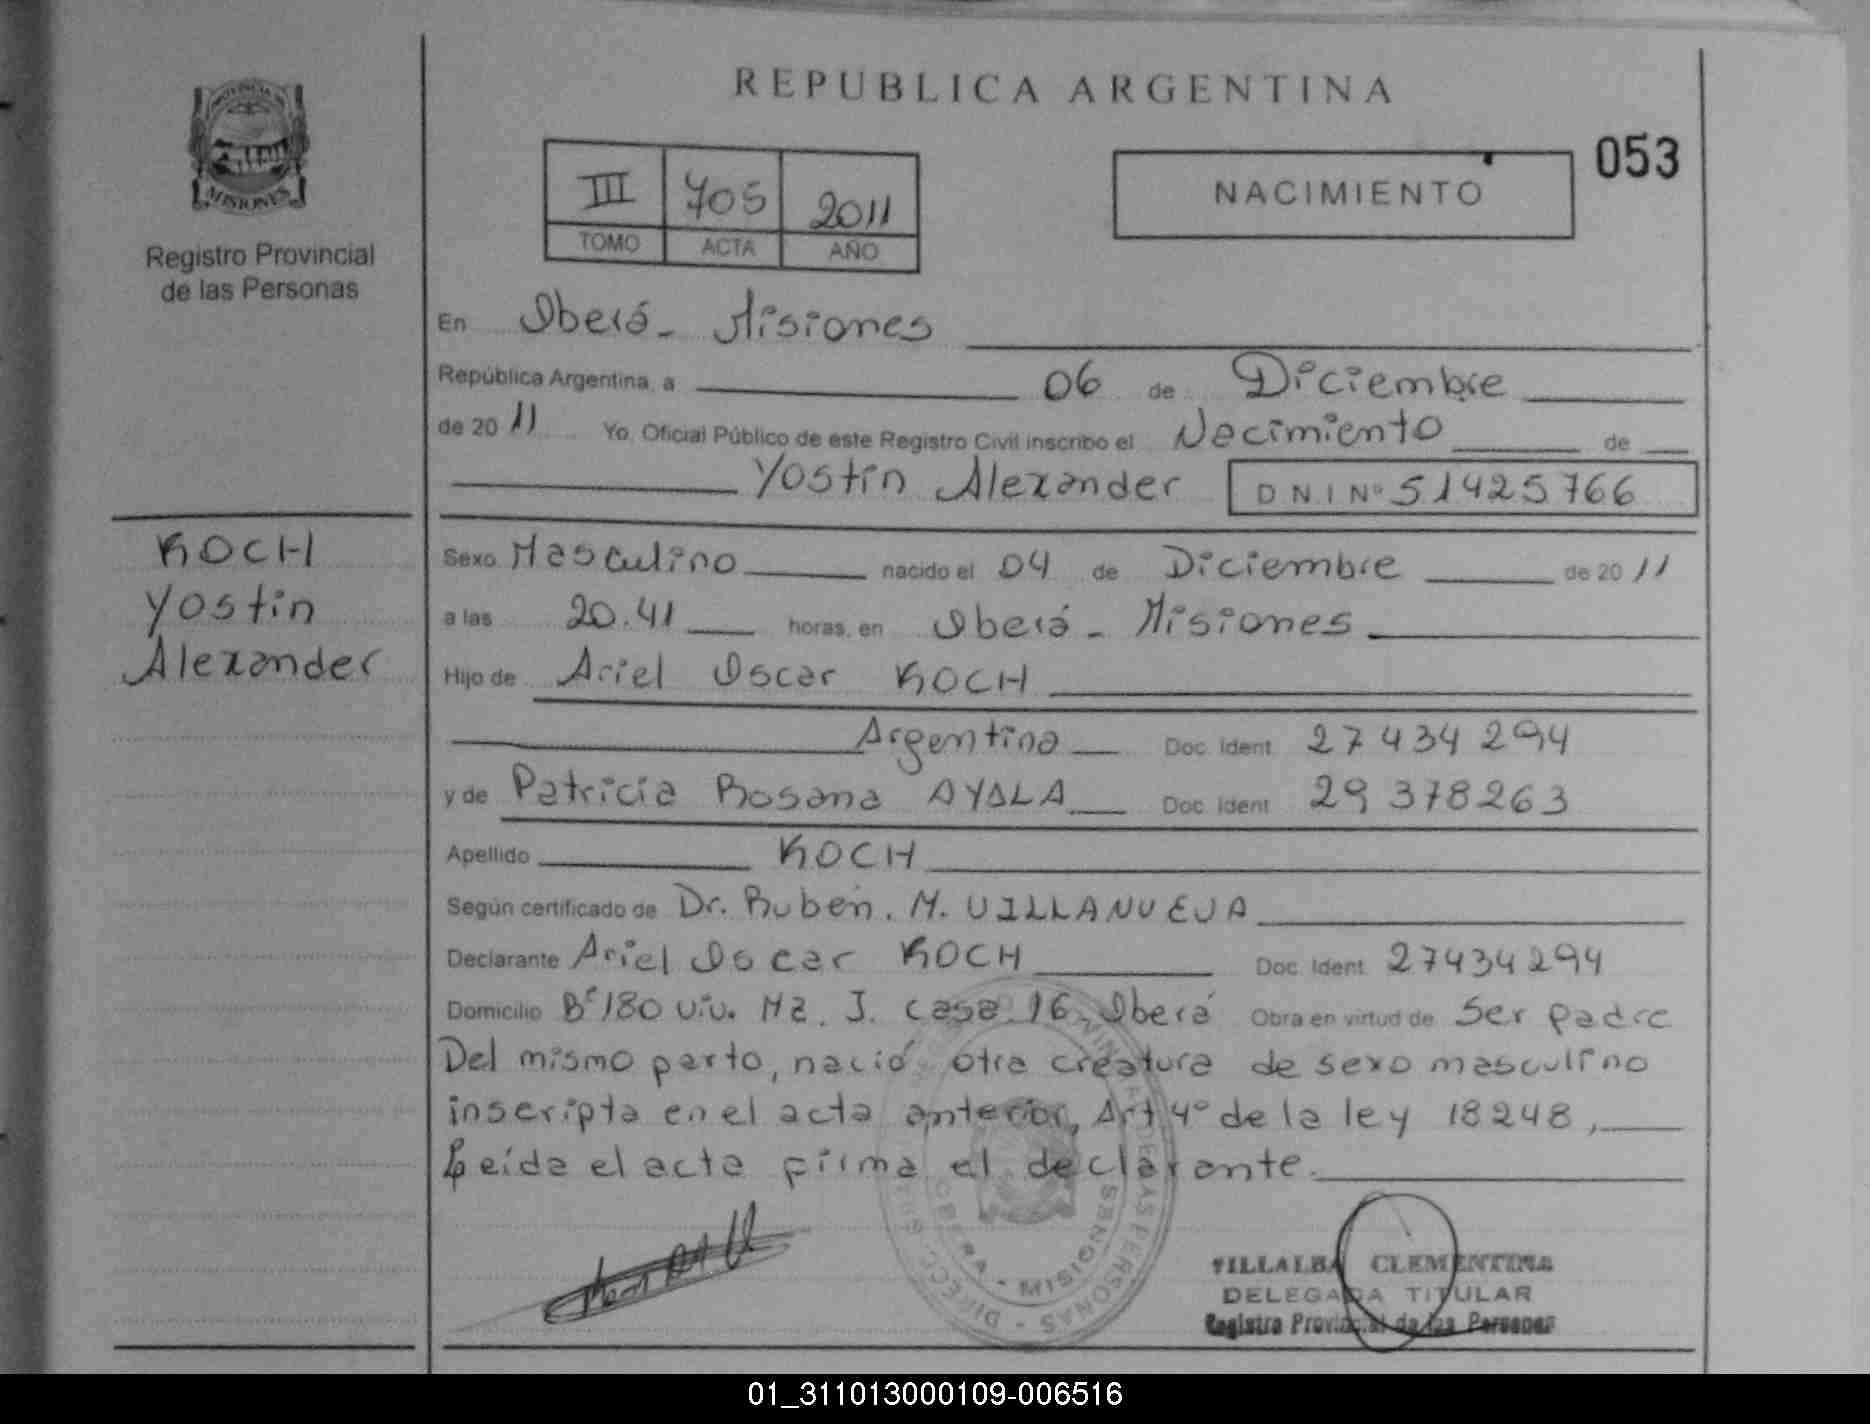 PROVINCIA DE
MISIONES
Registro Provincial
de las Personas
REPUBLICA ARGENTINA
III 705 2011
TOMO ACTA AÑO
NACIMIENTO
053
En Oberá - Misiones
República Argentina, a 06 de Diciembre
de 2011 Yo, Oficial Público de este Registro Civil inscribo el Nacimiento de
Yostin Alexander D N I Nº 51425766
KOCH
Yostin
Alexander
Sexo Masculino nacido el 04 de Diciembre de 2011
a las 20.41 horas, en Oberá - Misiones
Hijo de Ariel Oscar KOCH
Argentina Doc. Ident. 27434294
y de Patricia Rosana AYALA Doc. Ident. 29378263
Apellido KOCH
Según certificado de Dr. Rubén. M. VILLANUEVA
Declarante Ariel Oscar KOCH Doc. Ident. 27434294
Domicilio Bº 180 viv. Mz. J. casa 16. Oberá Obra en virtud de Ser padre
Del mismo parto, nació otra creatura de sexo masculino
inscripta en el acta anterior, Art 4º de la ley 18248,
Leída el acta firma el declarante.
OBERA - MISIONES
DE LAS PERSONAS - DIRECC
VILLALBA CLEMENTINA
DELEGADA TITULAR
Registro Provincial de las Personas
01_311013000109-006516